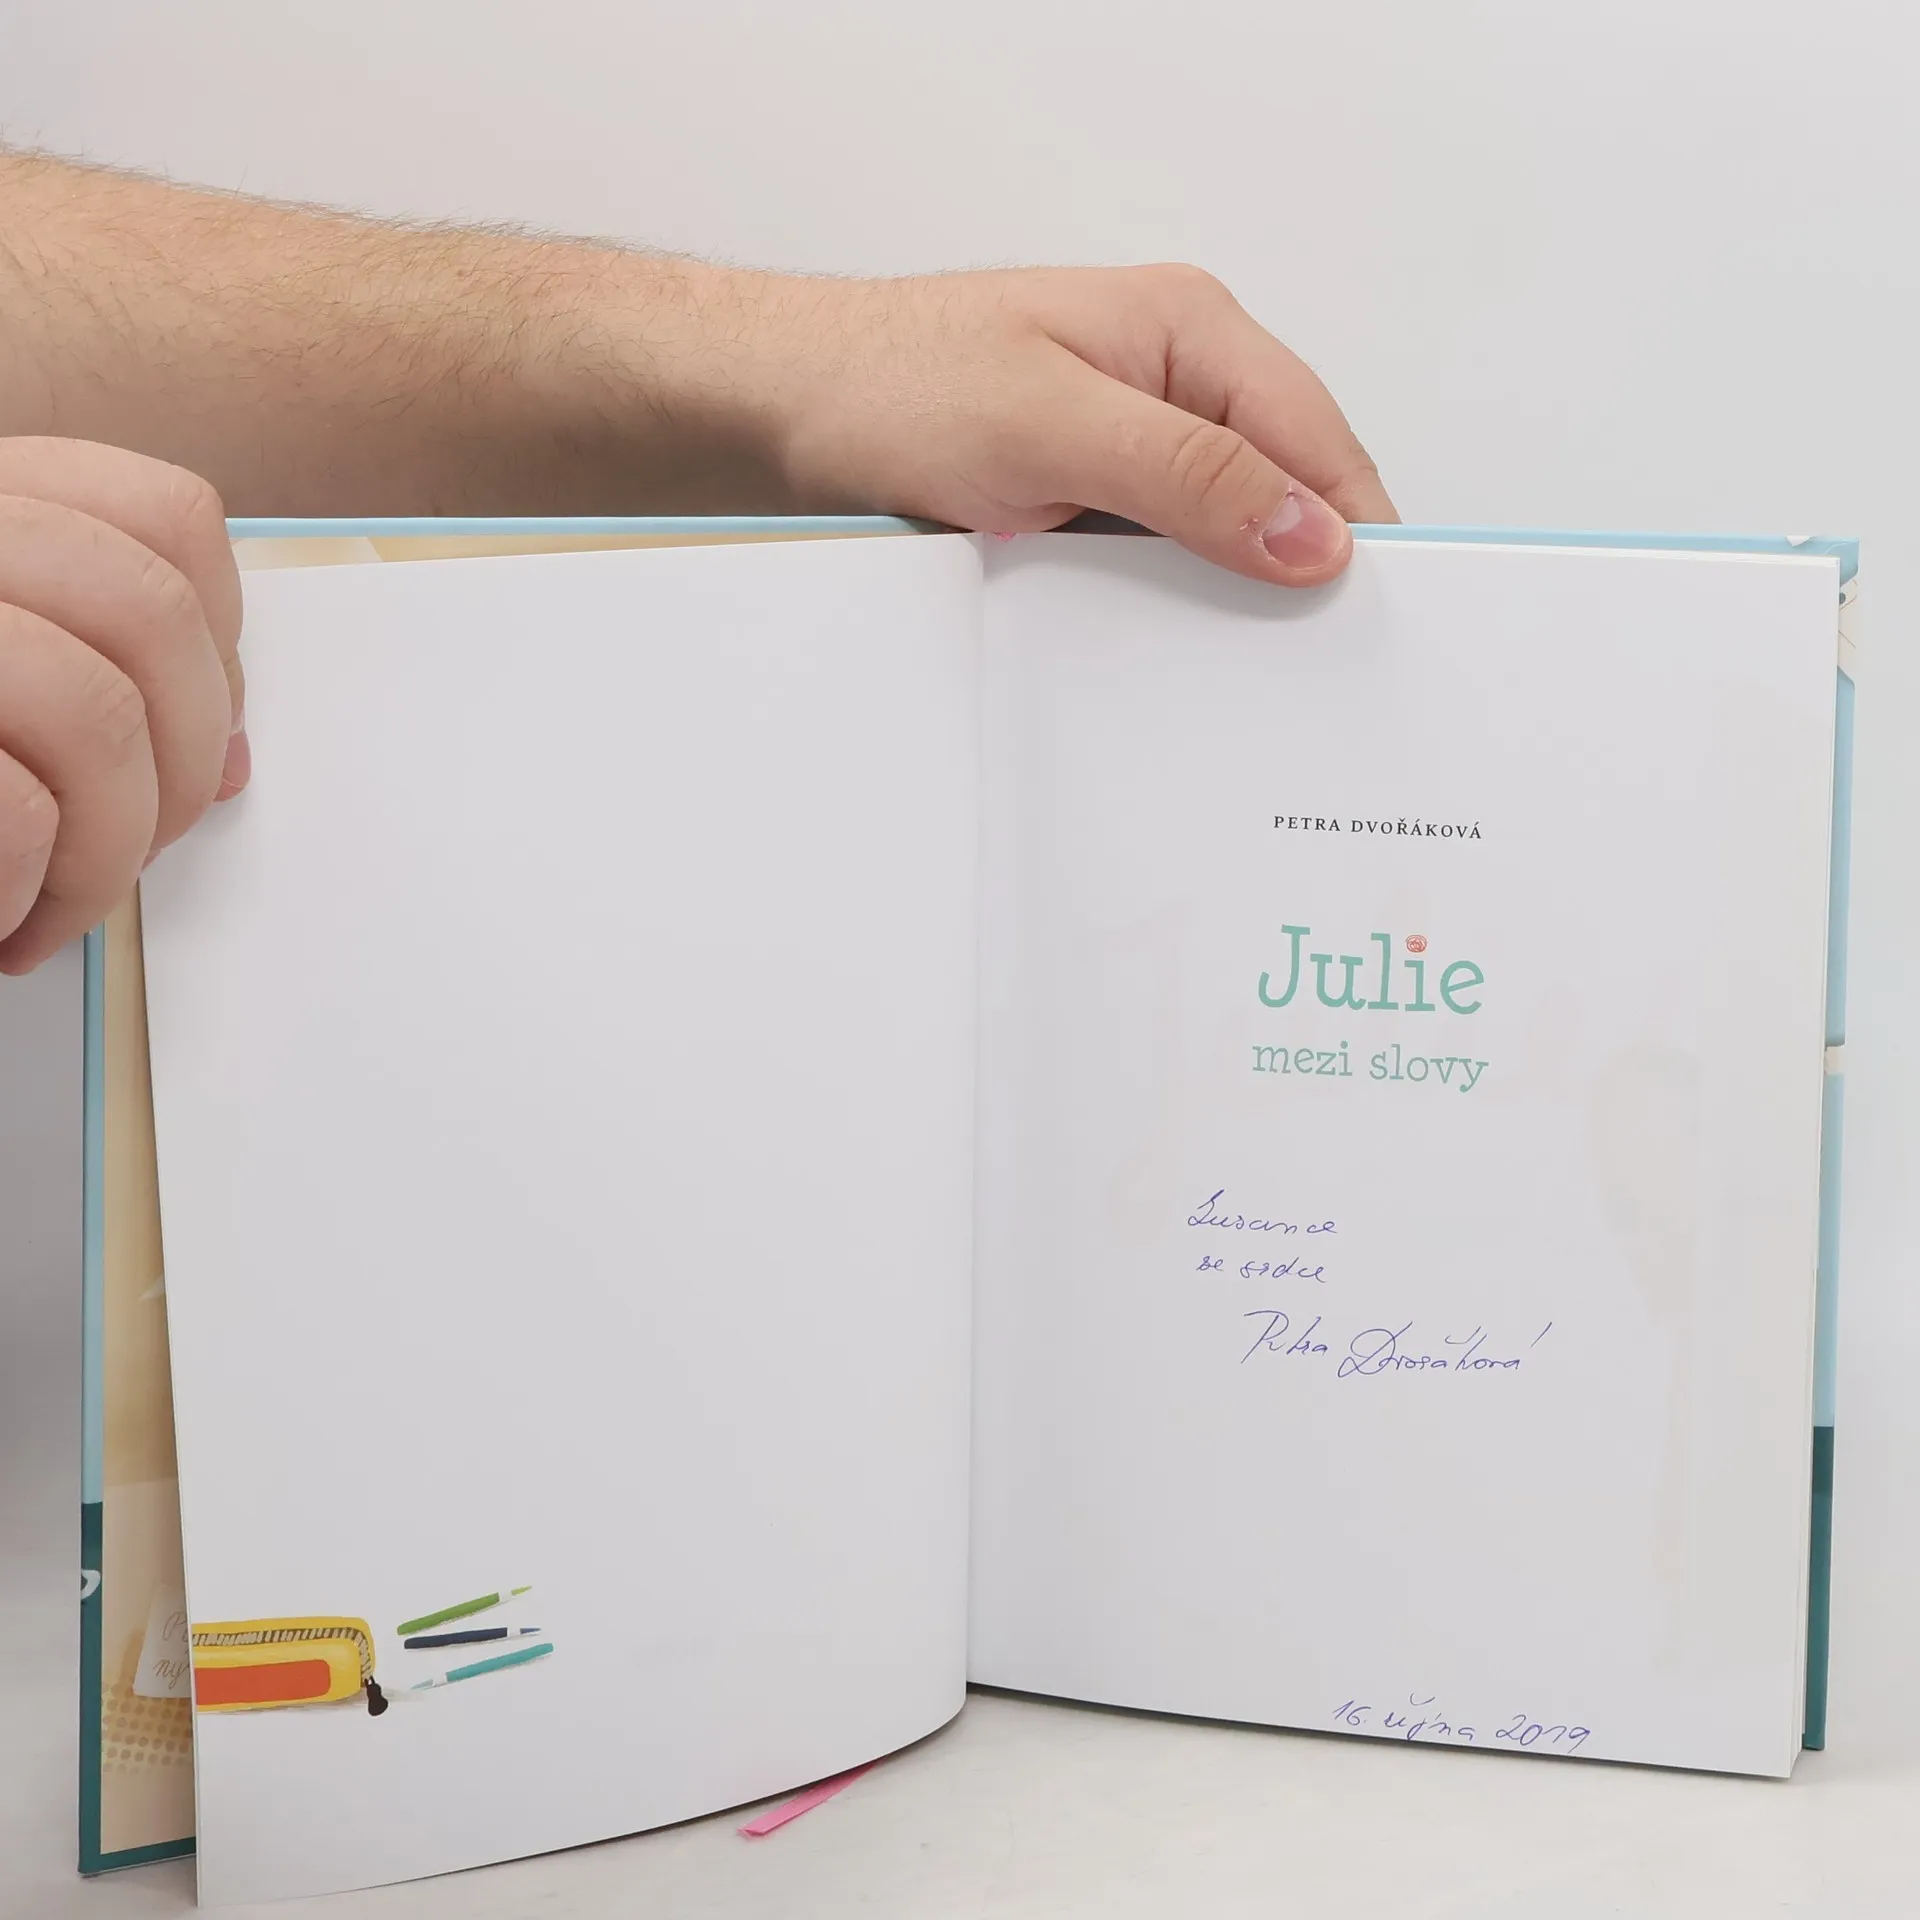 PETRA DVOŘÁKOVÁ
Julie
mezi slovy
Zuzance
ze srdce
Petra Dvořáková
16. října 2019